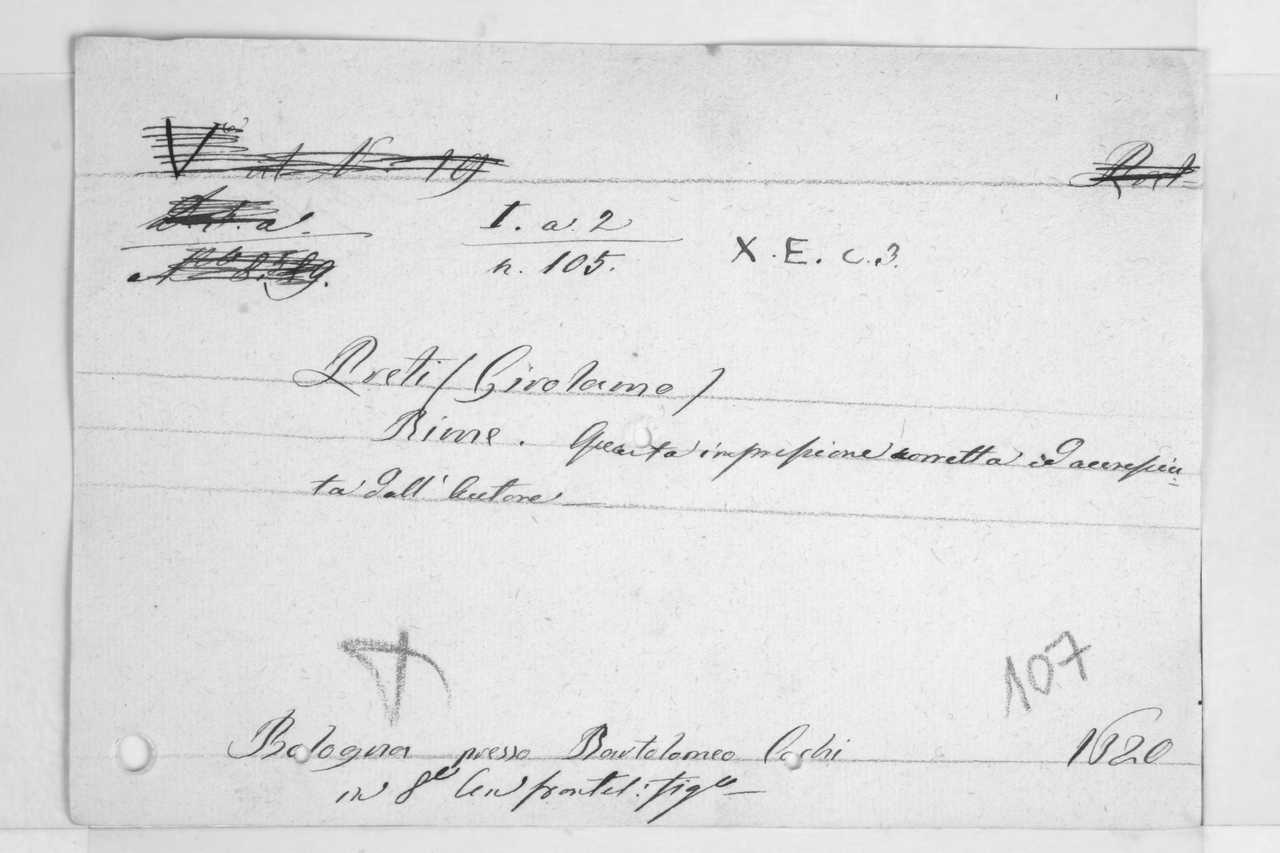 V
at N. 19
I. a. 2
n. 105.
X. E. c. 3.
Preti (Girolamo)
Rime. Quarta impressione corretta ed accresciu=
ta dall' Autore
107
Bologna presso Bartolomeo Cochi 1620
in 8º con frontes: fig.to